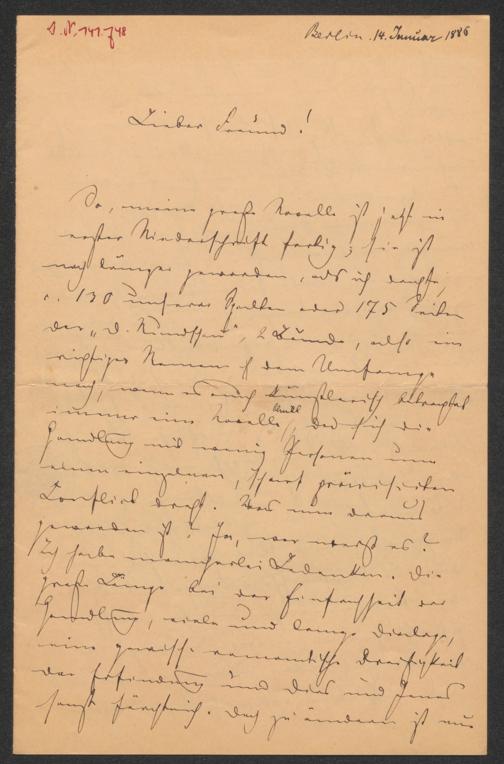 J. N. 141.748
Berlin. 14. Januar 1886
Lieber Freund!
So, meine große Novelle ist jetzt in
erster Niederschrift fertig; sie ist
noch länger geworden, als ich dachte,
c. 130 unserer Spalten oder 175 Seiten
der „D. Rundschau", 2 Bände, also ein
richtiger Roman dem Umfange
nach, wenn es auch künstlerisch betrachtet
immer eine Novelle bleibt, da sich die
Handlung mit wenig Personen um
einen einzelnen, scharf präcisirten
Conflict dreht. Was nun daraus
geworden ist? Ja, wer weiß es?
Ich habe mancherlei Bedenken. Die
große Länge bei der Einfachheit der
Handlung, viele und lange Dialoge,
eine gewisse romantische Dreistigkeit
der Erfindung und Dies und Jenes
sonst fürcht ich. Doch zu ändern ist nun